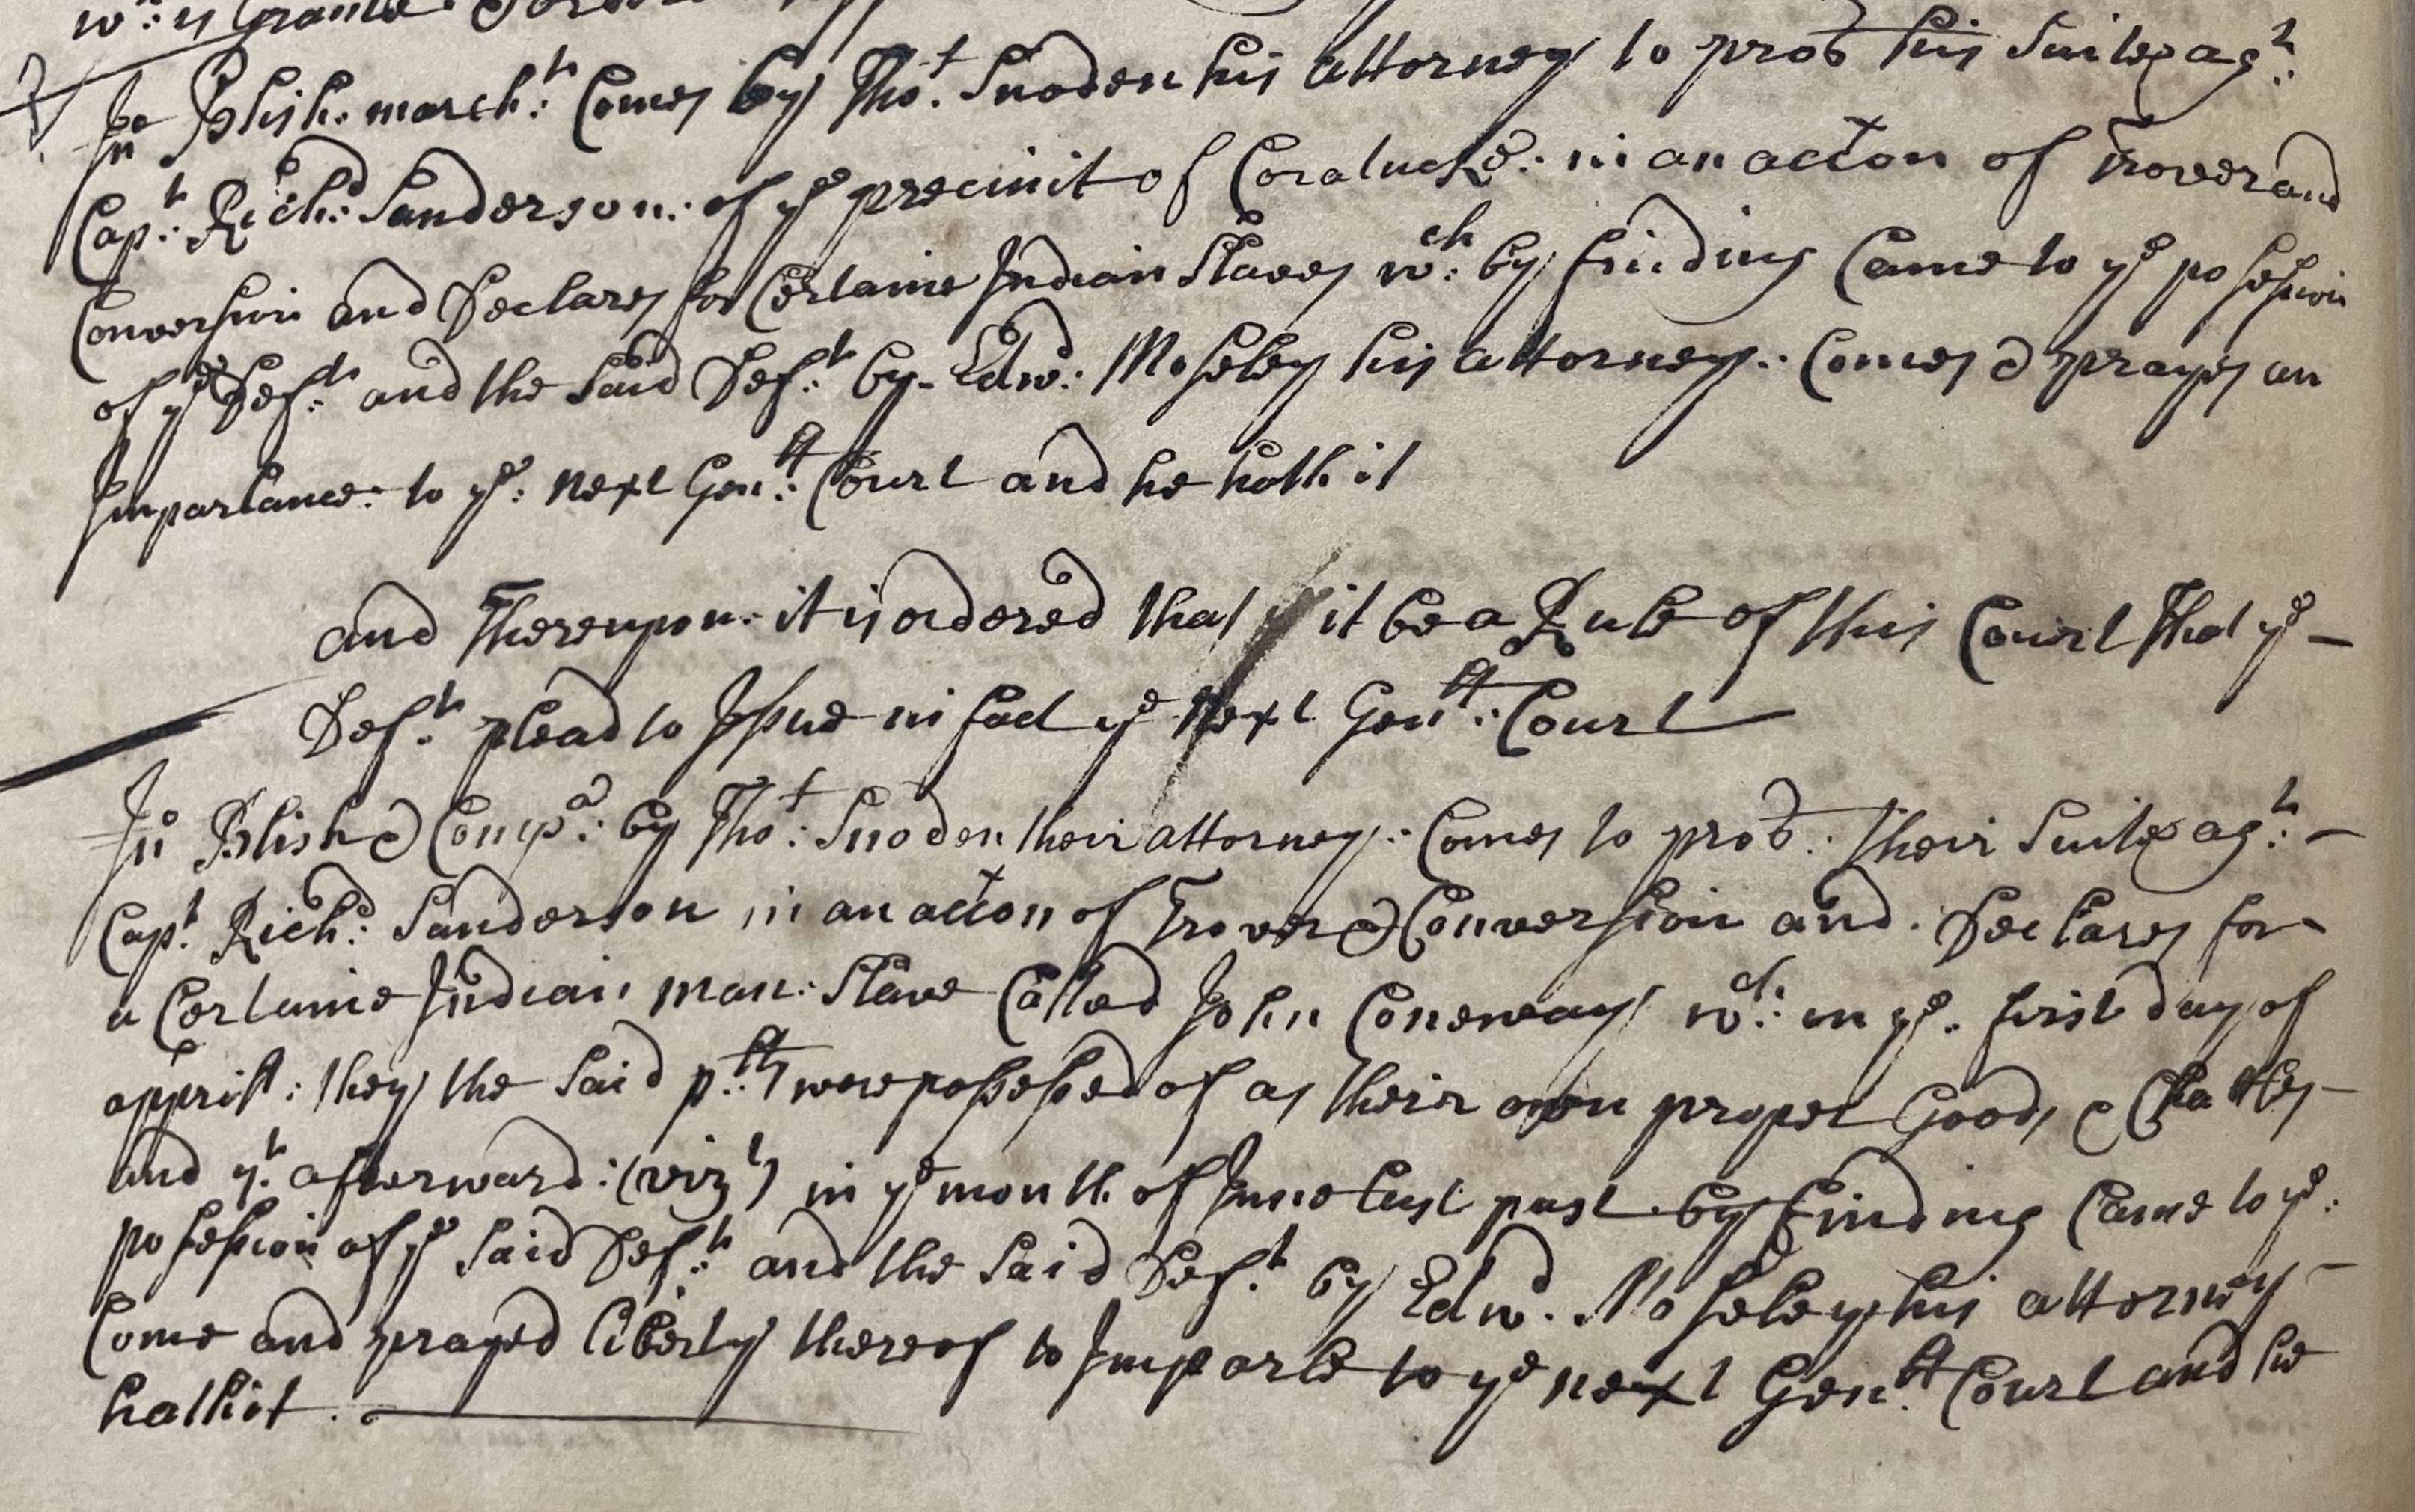 Jno Blish: march:t Comes by Tho:t Snoden his attorney to pros his Suite ag:t
Cap:t Rich:d Sanderson: of ye precinit of Coratucke: in an acc̃on of Trover and
Conversion and Declares for Certaine Indian Slaves w:ch by finding Came to ye posession
of ye Def:t and the Said Def:t by Edw:d Moseley his attorney: Comes & prayes an
Imparlance: to ye: next Gen:ll Court and he hath it
and Thereupon: it is ordered that it be a Rule of this Court That ye —
Def:t plead to Issue in fact ye next Gen:ll: Court
Jno Blish & Comp:a: by Tho:t Snoden their attorney: Comes to pros: their Suite ag:t: —
Cap:t Rich:d: Sanderson in an acc̃on of Trover & Conversion and. Declares for
a Certaine Indian man: Slave Called John Coneway w:ch: on ye: first day of
apprill: they the Said p:lls were possessed of as their own proper Goods & Chattles —
and yt afterward: (vizt) in ye month of June last past by finding Came to ye:
posession of ye Said Def:t: and the Said Def:t by Edwd. Moseley his attorney —
Come and prayed liberty thereof to Imparle to ye next Gen:ll Court and he
hath it.